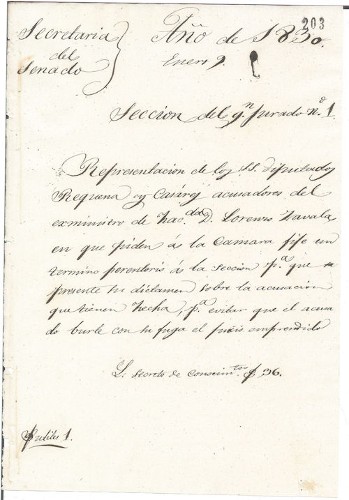 203
Secretaria
del
Senado
Año de 1830.
Enero 9.
Seccion del gn Jurado n.º 1.
Representacion de los SS. diputados
Requena y Cañirez acusadores del
exministro de Hac.da D. Lorenzo Zavala
en que piden á la Camara fije un
termino perentorio á la seccion p.a que
presente su dictamen sobre la acusacion
que tienen hecha, p.a evitar que el acusa
do burle con su fuga el juicio emprendido
L. Secreto de 36.
1.